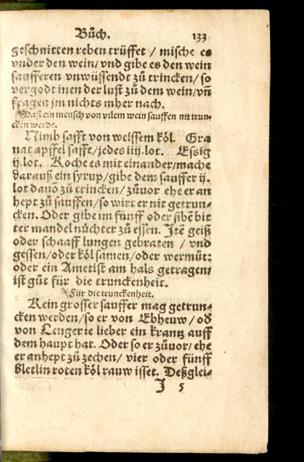 Bůch. 133
geschnitten reben trüffet / mische es
vnder den wein / vnd gibe es den wein
saufferen vnwüssendt zů trincken / so
vergodt inen der lust zů dem wein / vñ
fragen jm nichts mher nach.
Daß ein mensch von vilem wein sauffen nit trun-
cken werde.
Nimb safft von weissem köl. Gra
nat apffel safft / jedes iiij. lot. Essig
ij. lot. Koche es mit einander / mache
darauß ein syrup / gibe dem sauffer ij.
lot dauō zů trincken / zůuor ehe er an
hept zů sauffen / so wirt er nit getrun-
cken. Oder gibe im fünff oder sibē bit
ter mandel nüchter zů essen. Jtē geiß
oder schaaff lungen gebraten / vnd
gessen / oder köl samen / oder wermůt:
oder ein Ametist am hals getragen /
ist gůt für die trunckenheit.
Für die trunckenheit.
Kein grosser sauffer mag getrun-
cken werden / so er von Ebheuw / od̄
von Lengerie lieber ein krantz auff
dem haupt hat. Oder so er zůuor / ehe
er anhept zů zechen / vier oder fünff
Bletlin roten köl rauw isset. Deßglei-
J 5